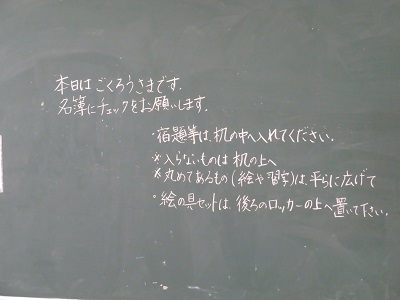 本日は ごくろうさまです.
・名簿にチェックをお願いします.
・宿題等は, 机の中へ入れてください.
※入らないものは 机の上へ
※丸めてあるもの(絵や習字)は, 平らに広げて
・絵の具セットは, 後ろのロッカーの上へ置いて下さい.